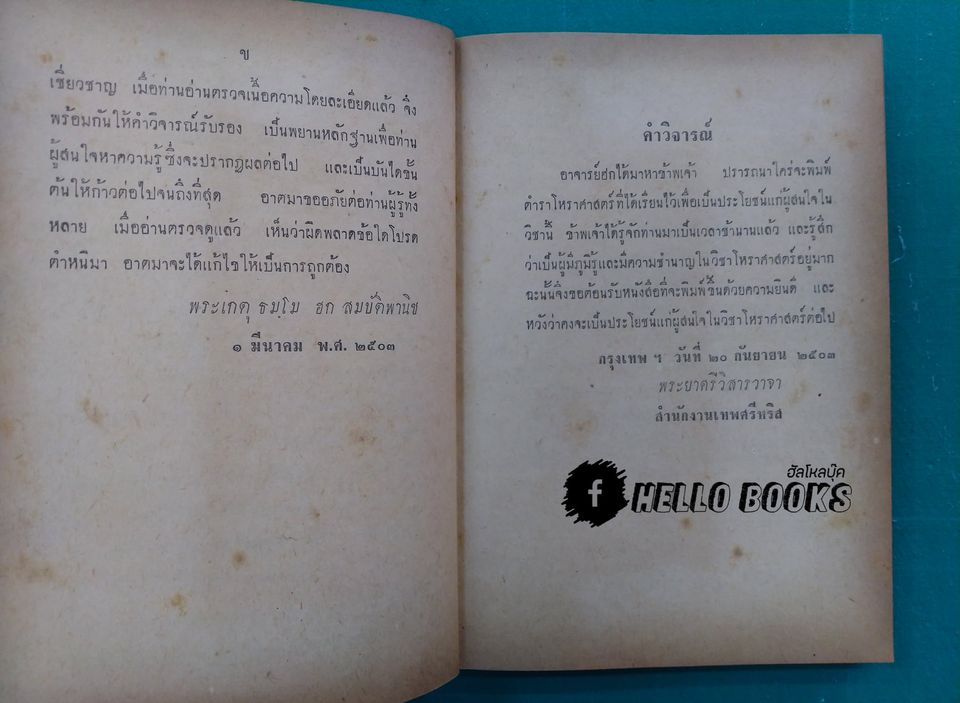 ข
เชี่ยวชาญ เมื่อท่านอ่านตรวจเนื้อความโดยละเอียดแล้ว จึ่ง
พร้อมกันให้คำวิจารณ์รับรอง เป็นพยานหลักฐานเพื่อท่าน
ผู้สนใจหาความรู้ ซึ่งจะปรากฏผลต่อไป และเป็นบันไดขั้น
ต้นให้ก้าวต่อไปจนถึงที่สุด อาตมาขออภัยต่อท่านผู้รู้ทั้ง
หลาย เมื่ออ่านตรวจดูแล้ว เห็นว่าผิดพลาดข้อใดโปรด
ตำหนิมา อาตมาจะได้แก้ไขให้เป็นการถูกต้อง
พระเกตุ ธมฺโม ฮก สมบัติพานิช
๑ มีนาคม พ.ศ. ๒๕๐๓
คำวิจารณ์
อาจารย์ฮกได้มาหาข้าพเจ้า ปรารถนาใคร่จะพิมพ์
ตำราโหราศาสตร์ที่ได้เรียนไว้เพื่อเป็นประโยชน์แก่ผู้สนใจใน
วิชานี้ ข้าพเจ้าได้รู้จักท่านมาเป็นเวลาช้านานแล้ว และรู้สึก
ว่าเป็นผู้มีภูมิรู้และมีความชำนาญในวิชาโหราศาสตร์อยู่มาก
ฉะนั้นจึงขอต้อนรับหนังสือที่จะพิมพ์ขึ้นด้วยความยินดี และ
หวังว่าคงจะเป็นประโยชน์แก่ผู้สนใจในวิชาโหราศาสตร์ต่อไป
กรุงเทพ ฯ วันที่ ๒๐ กันยายน ๒๕๐๓
พระยาศรีวิสารวาจา
สำนักงานเทพศรีหริส
ฮัลโหลบุ๊ค
f HELLO BOOKS